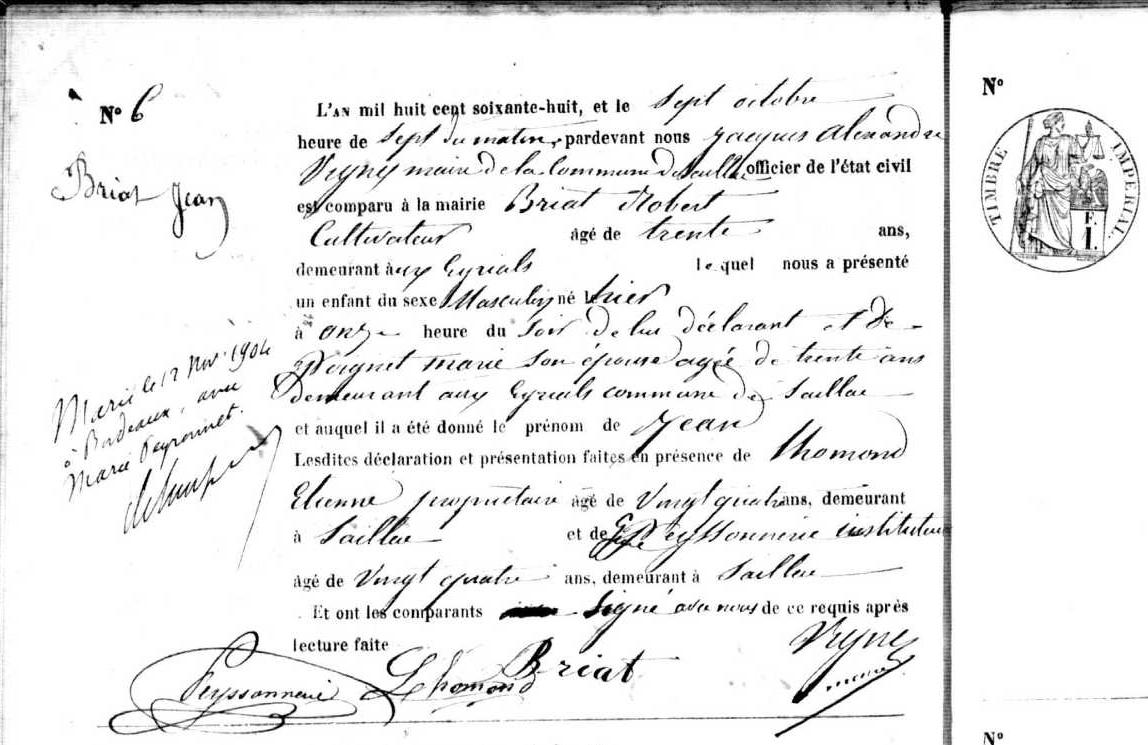 N° 6
Briat Jean
L'AN mil huit cent soixante-huit, et le sept octobre
heure de sept du matin, pardevant nous Jacques Alexandre
Veyny maire de la Commune de Saillac officier de l'état civil
est comparu à la mairie Briat Robert
Cultivateur âgé de trente ans,
demeurant aux Eyrials lequel nous a présenté
un enfant du sexe Masculin né le hier
à onze heure du soir de lui déclarant et de
Poignet marie son épouse agée de trente ans
demeurant aux Eyrials commune de Saillac
et auquel il a été donné le prénom de Jean
Lesdites déclaration et présentation faites en présence de Lhomond
Etienne propriétaire âgé de Vingt quatre ans, demeurant
à Saillac et de Peyssonnerie instituteur
âgé de Vingt quatre ans, demeurant à Saillac
Et ont les comparants signé avec nous de ce requis après
lecture faite
Peyssonnerie Lhomond Briat
maire
Marié le 12 Nov. 1904
à Bordeaux, avec
Marie Peyronnet.
N°
TIMBRE IMPÉRIAL.
F.
1.
N°